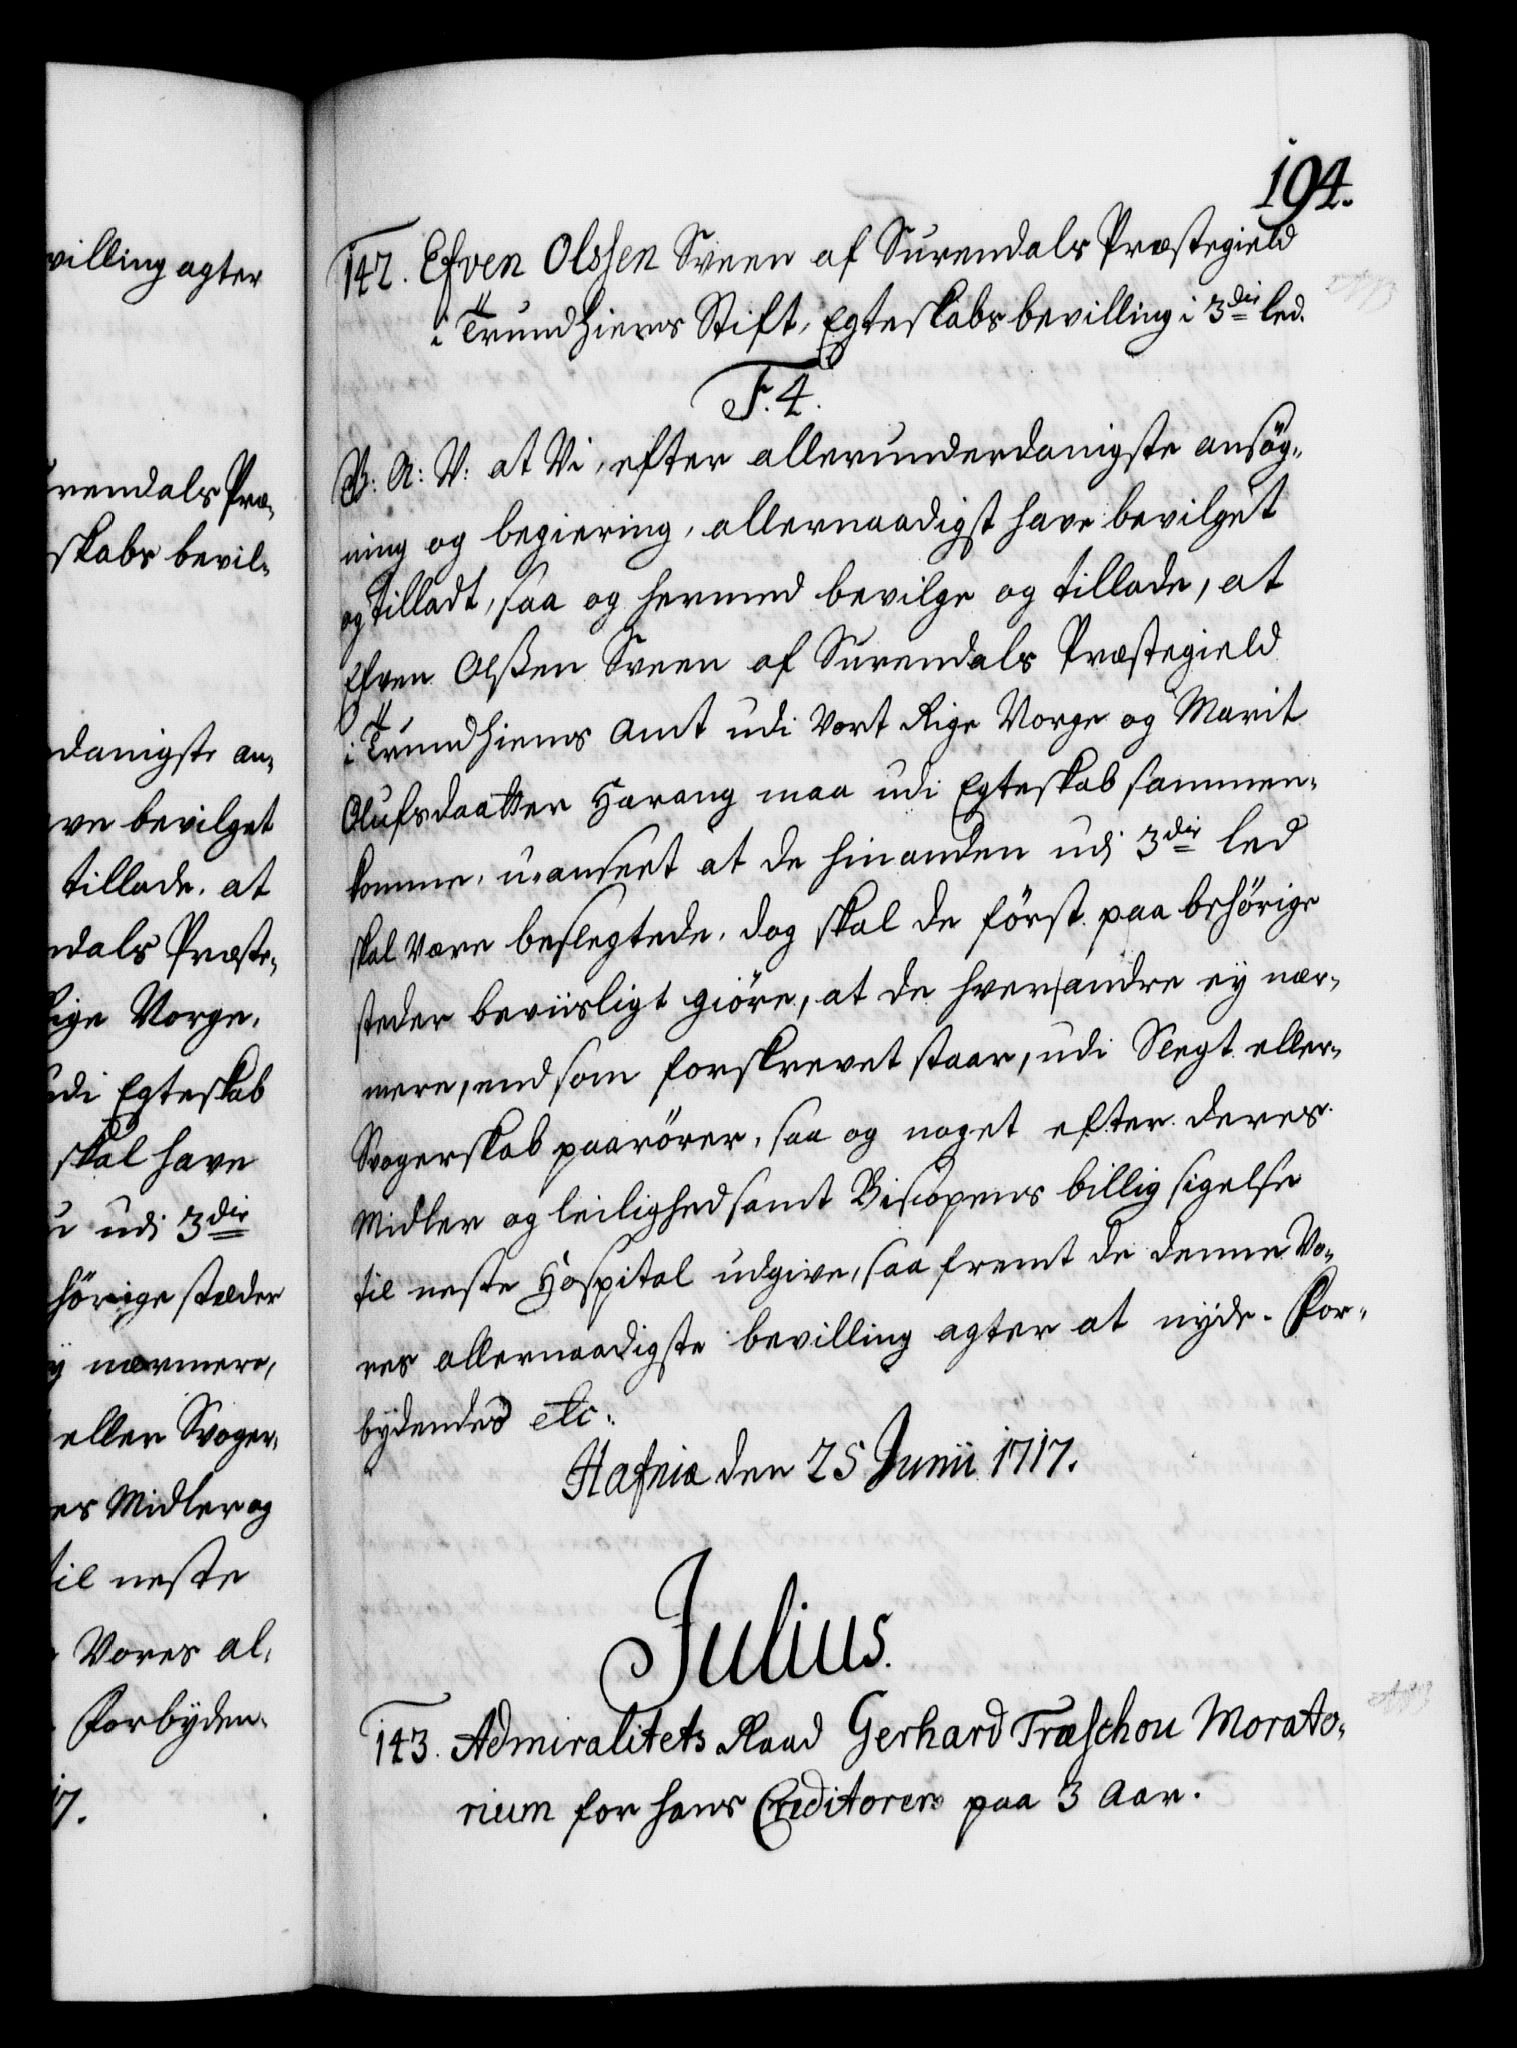 villing agter
rendals Præ-
skabs bevil-
danigste an-
ve bevilget
tillade, at
ndals Præste-
Rige Norge,
udi Egteskab
skal have
udi 3die
hörige stæder
ÿ nærmere,
eller Svoger-
es Midler og
til neste
Vores al-
Forbÿden-
17.
194.
142. Efven Olssen Sveen af Surendals Præstegield
i Trundhiems Stift, Egteskabs bevilling i 3die led.
F. 4.
G: A: V: at Vi, efter allerunderdanigste ansög-
ning og begiering, allernaadigst have bevilget
og tilladt, saa og hermed bevilge og tillade, at
Efven Olssen Sveen af Surendals Præstegield
i Trundhiems Amt udi Vort Rige Norge og Marit
Olufsdaatter Harang maa udi Egteskab sammen-
komme, u-anseet at de hinanden udi 3die led
skal være beslegtede, dog skal de först paa behörige
steder beviisligt giöre, at de hverandre eÿ nær-
mere, end som forskrevet staar, udi Slegt eller
Svogerskab paarörer, saa og noget efter deres
Midler og leilighed samt Biscopens billig sigelse
til neste Hospital udgive, saa fremt de denne Vo-
res allernaadigste bevilling agter at nÿde. For-
bÿdendes etc.
Hafnia den 25 Junii 1717.
Julius.
143. Admiralitets Raad Gerhard Træschou Morato-
rium for hans Creditorer paa 3 Aar.